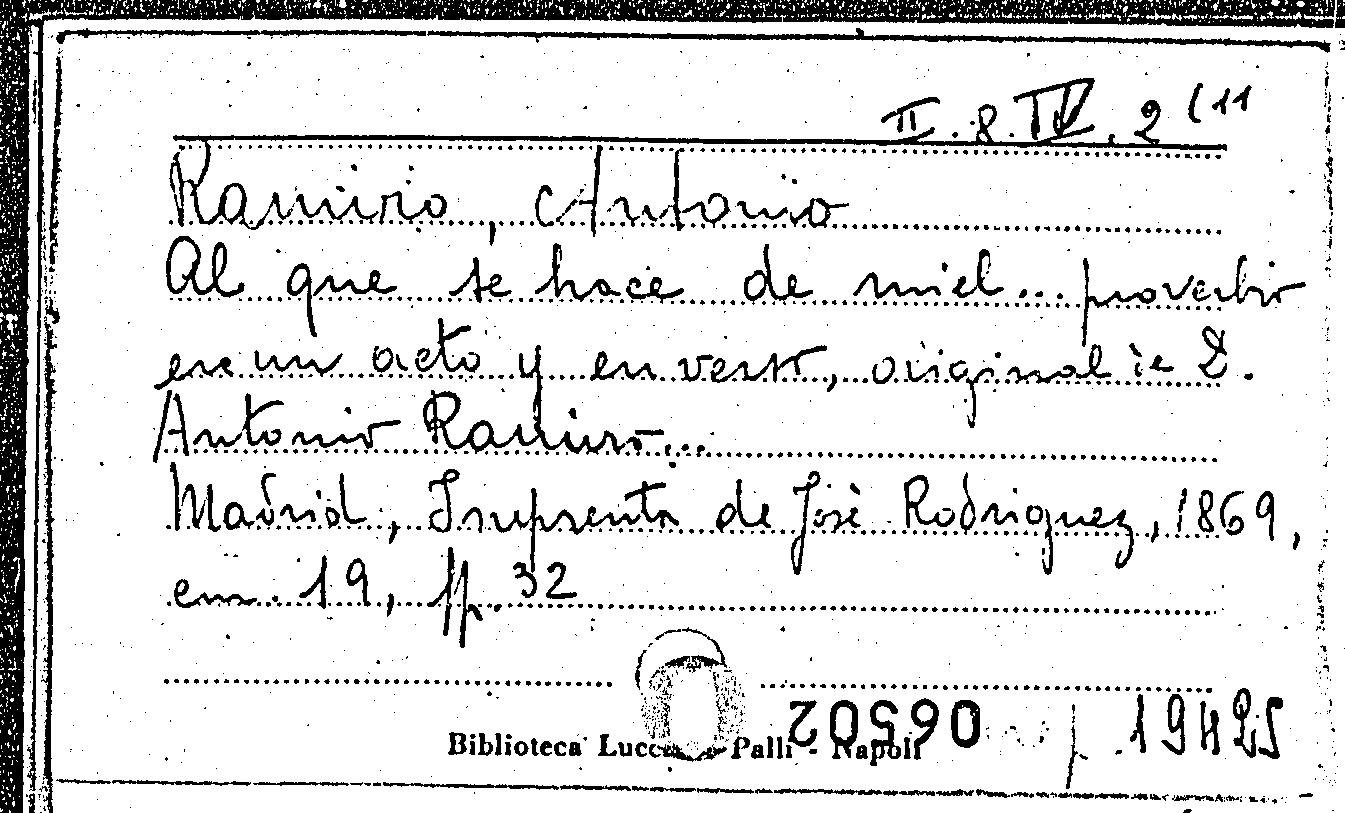 II. 8. IV. 2 (11
Ramiro, Antonio
Al que se hace de miel... proverbio
en un acto y en verso, original de D.
Antonio Ramiro...
Madrid, Imprenta de Josè Rodriguez, 1869,
cm. 19, pp. 32
06502
19425
Biblioteca Palli - Napoli